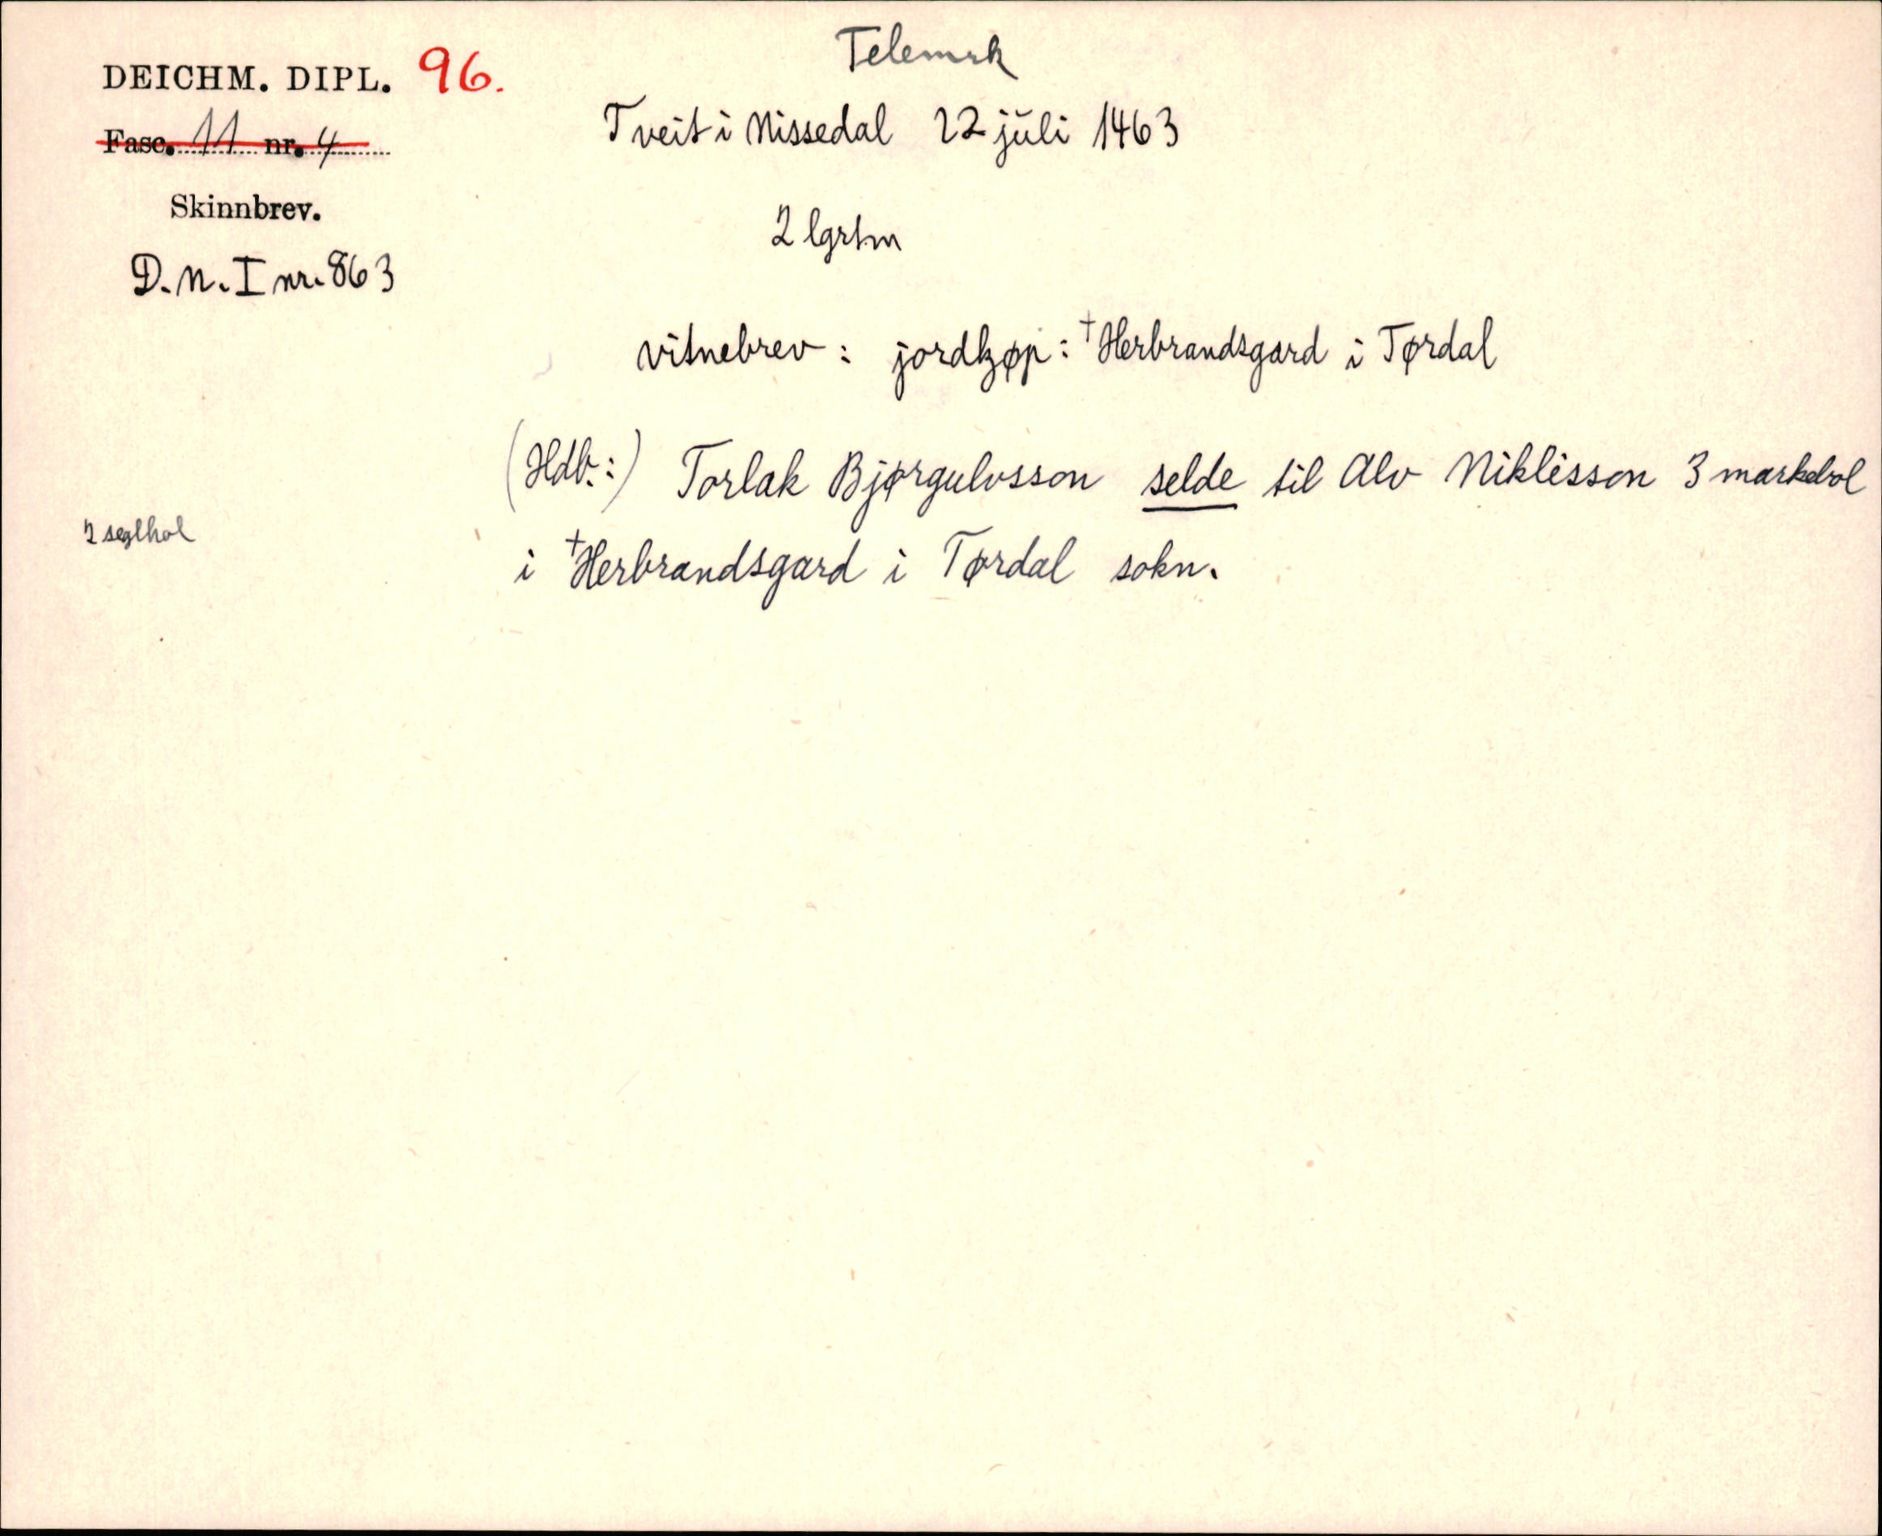 Telemrk
DEICHM. DIPL. 96.
Fasc. 11 nr. 4
Tveit i Nissedal 22 juli 1463
Skinnbrev.
2 lgrtm
D.N. I nr. 863
vitnebrev : jordkjøp : †Herbrandsgard i Tørdal
(Hdb:) Torlak Bjørgulvsson selde til Alv Niklisson 3 markebol
2 seglhol
i †Herbrandsgard i Tørdal sokn.